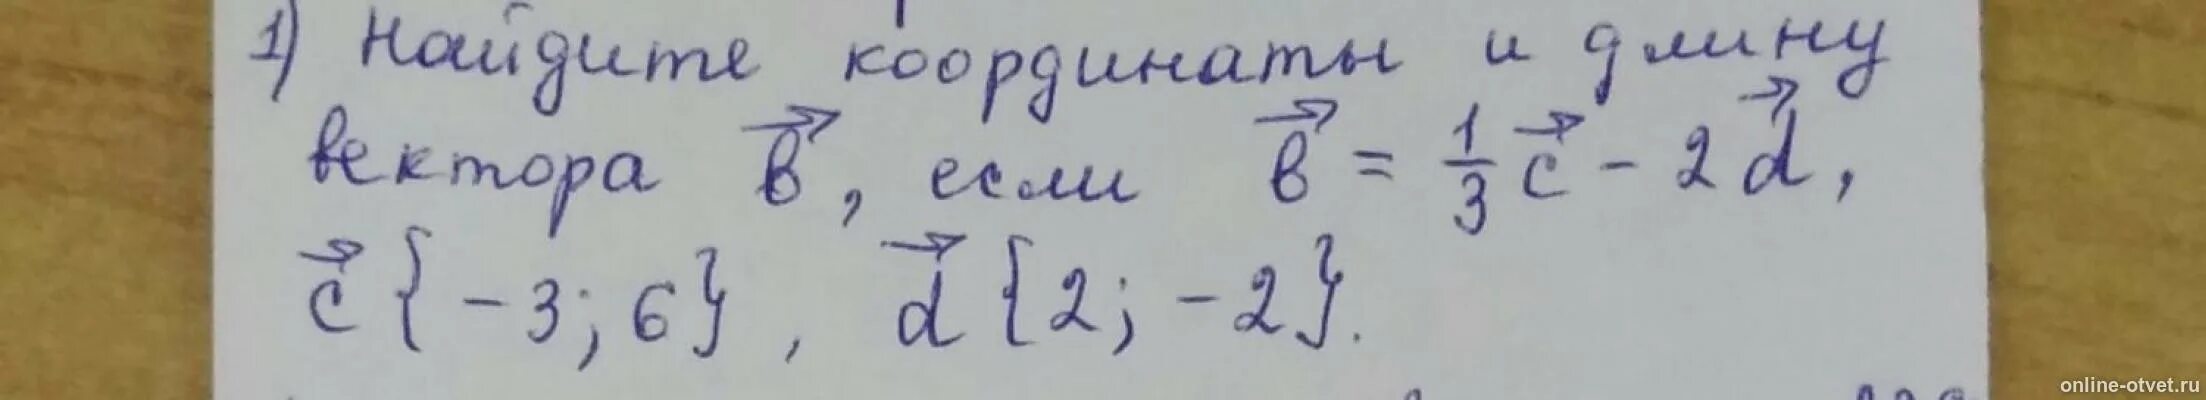 1) Найдите координаты и длину
вектора b⃗, если b⃗ = 1/3 c⃗ - 2d⃗,
c⃗ {-3; 6}, d⃗ {2; -2}.
online-otvet.ru